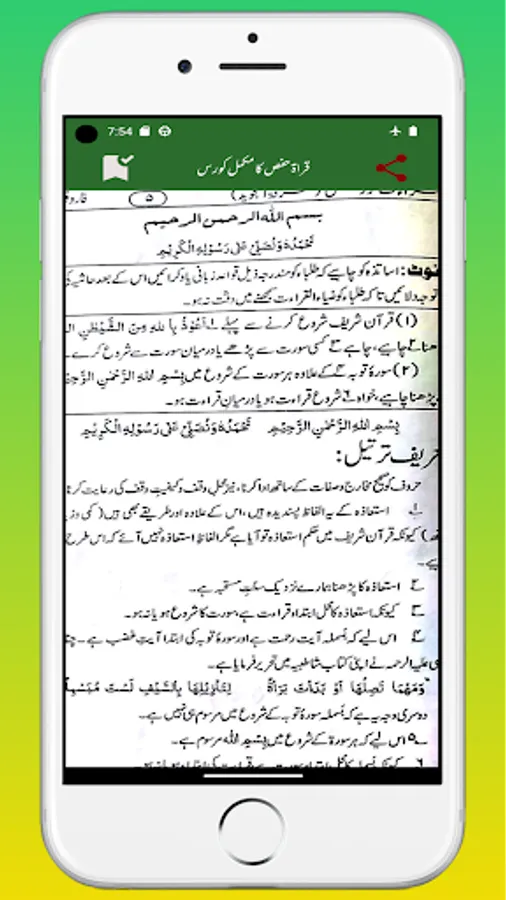 7:54
قراۃ حفص کا مکمل کورس
۵
بسم اللہ الرحمن الرحیم
نَحْمَدُہٗ وَنُصَلِّیْ عَلٰی رَسُوْلِہِ الْکَرِیْمِ
نوٹ: اساتذہ کو چاہیے کہ طلباء کو مندرجہ ذیل قواعد زبانی یاد کرائیں اس کے بعد حاشیہ کی
توجہ دلائیں تاکہ طلباء کو ضیاء القراءت سمجھنے میں دقت نہ ہو۔
(۱) قرآن شریف شروع کرنے سے پہلے اَعُوْذُ بِاللہِ مِنَ الشَّیْطٰنِ
چاہیے، چاہے کسی سورت سے پڑھے یا درمیان سورت سے شروع کرے۔
(۲) سورۂ توبہ کے علاوہ ہر سورت کے شروع میں بِسْمِ اللہِ الرَّحْمٰنِ الرَّحِ
پڑھنا چاہیے، خواہ شروع قراءت ہو یا درمیان قراءت ہو۔
بِسْمِ اللہِ الرَّحْمٰنِ الرَّحِیْمِ نَحْمَدُہٗ وَنُصَلِّیْ عَلٰی رَسُوْلِہِ الْکَرِیْمِ
ریف ترتیل:
حروف کو صحیح مخارج و صفات کے ساتھ ادا کرنا، نیز محلِ وقف و کیفیتِ وقف کی رعایت کرنا
۱ استعاذہ کے یہ الفاظ پسندیدہ ہیں، اس کے علاوہ اور طریقے بھی ہیں (کمی
کیونکہ قرآن شریف میں حکم استعاذہ تو آیا ہے مگر الفاظِ استعاذہ نہیں آئے کہ اس طرح
ہے۔
۲ استعاذہ کا پڑھنا ہمارے نزدیک سنتِ مستحبہ ہے۔
۳ کیونکہ استعاذہ کا محل ابتداء قراءت ہے، سورت کا شروع ہو یا نہ ہو۔
۴ اس لیے کہ بسملہ آیت رحمت ہے اور سورۂ توبہ کی ابتدا آیتِ غضب ہے۔
علیہ الرحمہ نے اپنی کتاب شاطبیہ میں تحریر فرمایا ہے۔
وَمَهْمَا تَصِلْهَا أَوْ بَدَأْتَ بَرَاءَةً لِتَنْزِيْلِهَا بِالسَّيْفِ لَسْتَ مُبَسْمِلًا
دوسری وجہ یہ ہے کہ بسملہ سورۂ توبہ کے شروع میں مرسوم ہی نہیں ہے۔
۵ اس لیے کہ ہر سورۃ کے شروع میں بِسْمِ اللہ مرسوم ہے۔